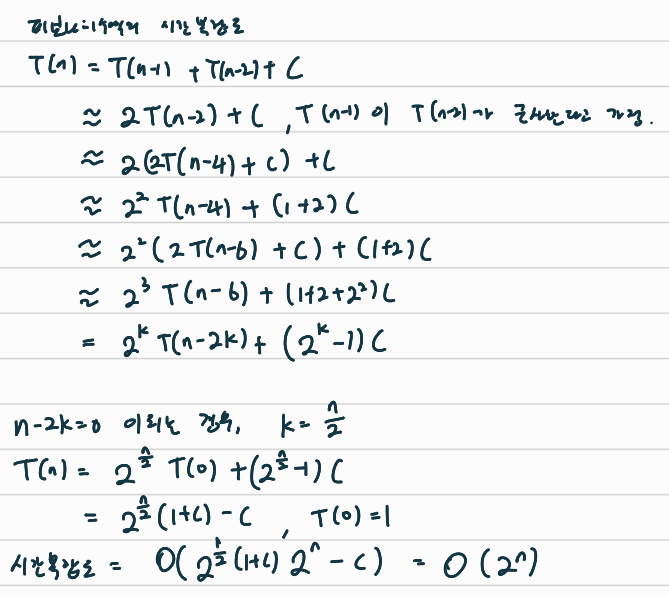 피보나치수열의 시간복잡도
T(n) = T(n-1) + T(n-2) + C
≈ 2T(n-2) + C , T(n-1)이 T(n-2)가 근사한다고 가정.
≈ 2(2T(n-4) + C) + C
≈ 2² T(n-4) + (1+2)C
≈ 2²(2T(n-6) + C) + (1+2)C
≈ 2³ T(n-6) + (1+2+2²)C
= 2ᵏ T(n-2k) + (2ᵏ-1)C
n-2k=0 이되는 경우, k = n/2
T(n) = 2^(n/2) T(0) + (2^(n/2)-1)C
= 2^(n/2)(1+C) - C , T(0)=1
시간복잡도 = O(2^(1/2)(1+C) 2ⁿ - C) = O(2ⁿ)